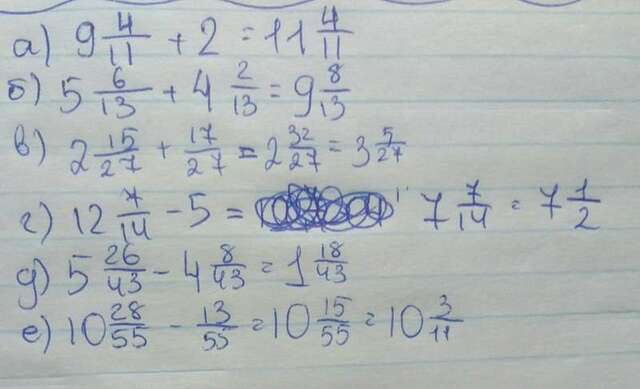 а) 9 4/11 + 2 = 11 4/11
б) 5 6/13 + 4 2/13 = 9 8/13
в) 2 15/27 + 17/27 = 2 32/27 = 3 5/27
г) 12 7/14 - 5 = 7 7/14 = 7 1/2
д) 5 26/43 - 4 8/43 = 1 18/43
е) 10 28/55 - 13/55 = 10 15/55 = 10 3/11